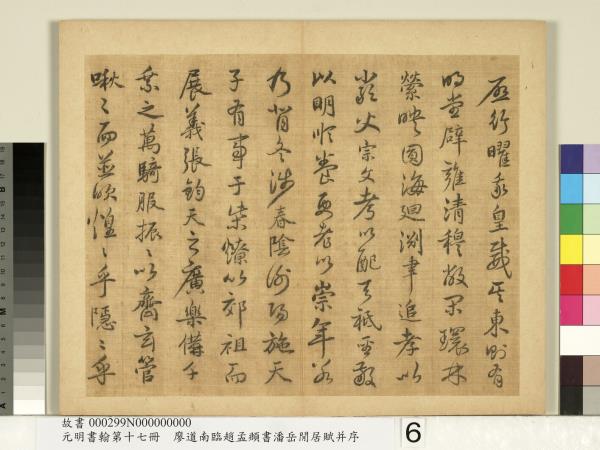 啟行曜我皇威其東則有
明堂辟雍清穆敞閑環林
縈映圓海迴淵聿追孝以
嚴父宗文考以配天祗聖敬
以明順養更老以崇年若
乃背冬涉春陰謝陽施天
子有事于柴燎以郊祖而
展義張鈞天之廣樂備千
乘之萬騎服振〻以齊玄管
啾〻而並吹煌〻乎隱〻乎
故書 000299N000000000
元明書翰第十七冊 廖道南臨趙孟頫書潘岳閒居賦并序
6